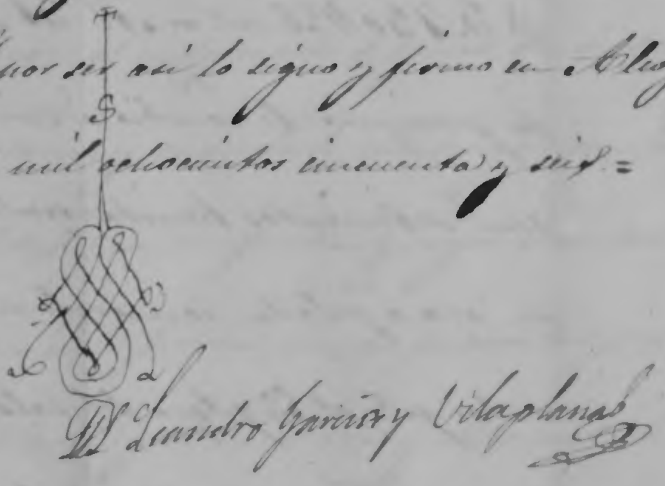 por ser asi lo signo y firmo en
S
mil ochocientos cincuenta y seis =
Leandro Garcia y Vilaplana